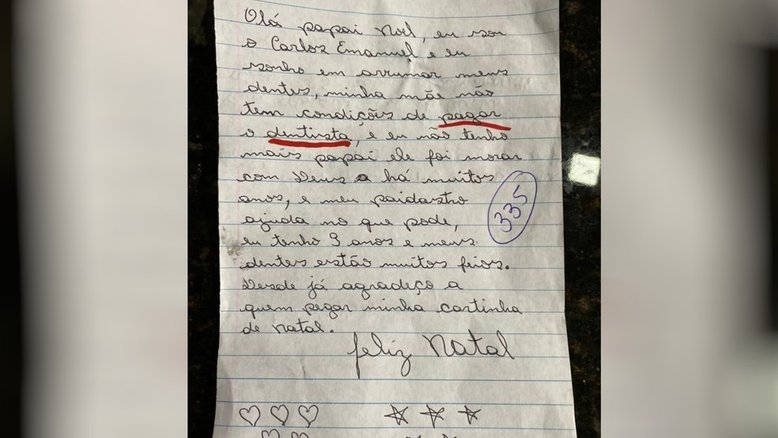 Olá papai Noel, eu sou
o Carlos Emanuel e eu
sonho em arrumar meus
dentes, minha mãe não
tem condições de pagar
o dentista, e eu não tenho
mais papai ele foi morar
com Deus a há muitos
anos, e meu paidastho
ajuda no que pode,
335
eu tenho 9 anos e meus
dentes estão muitos feios.
Desde já agradeço a
quem pegar minha cartinha
de natal.
feliz Natal